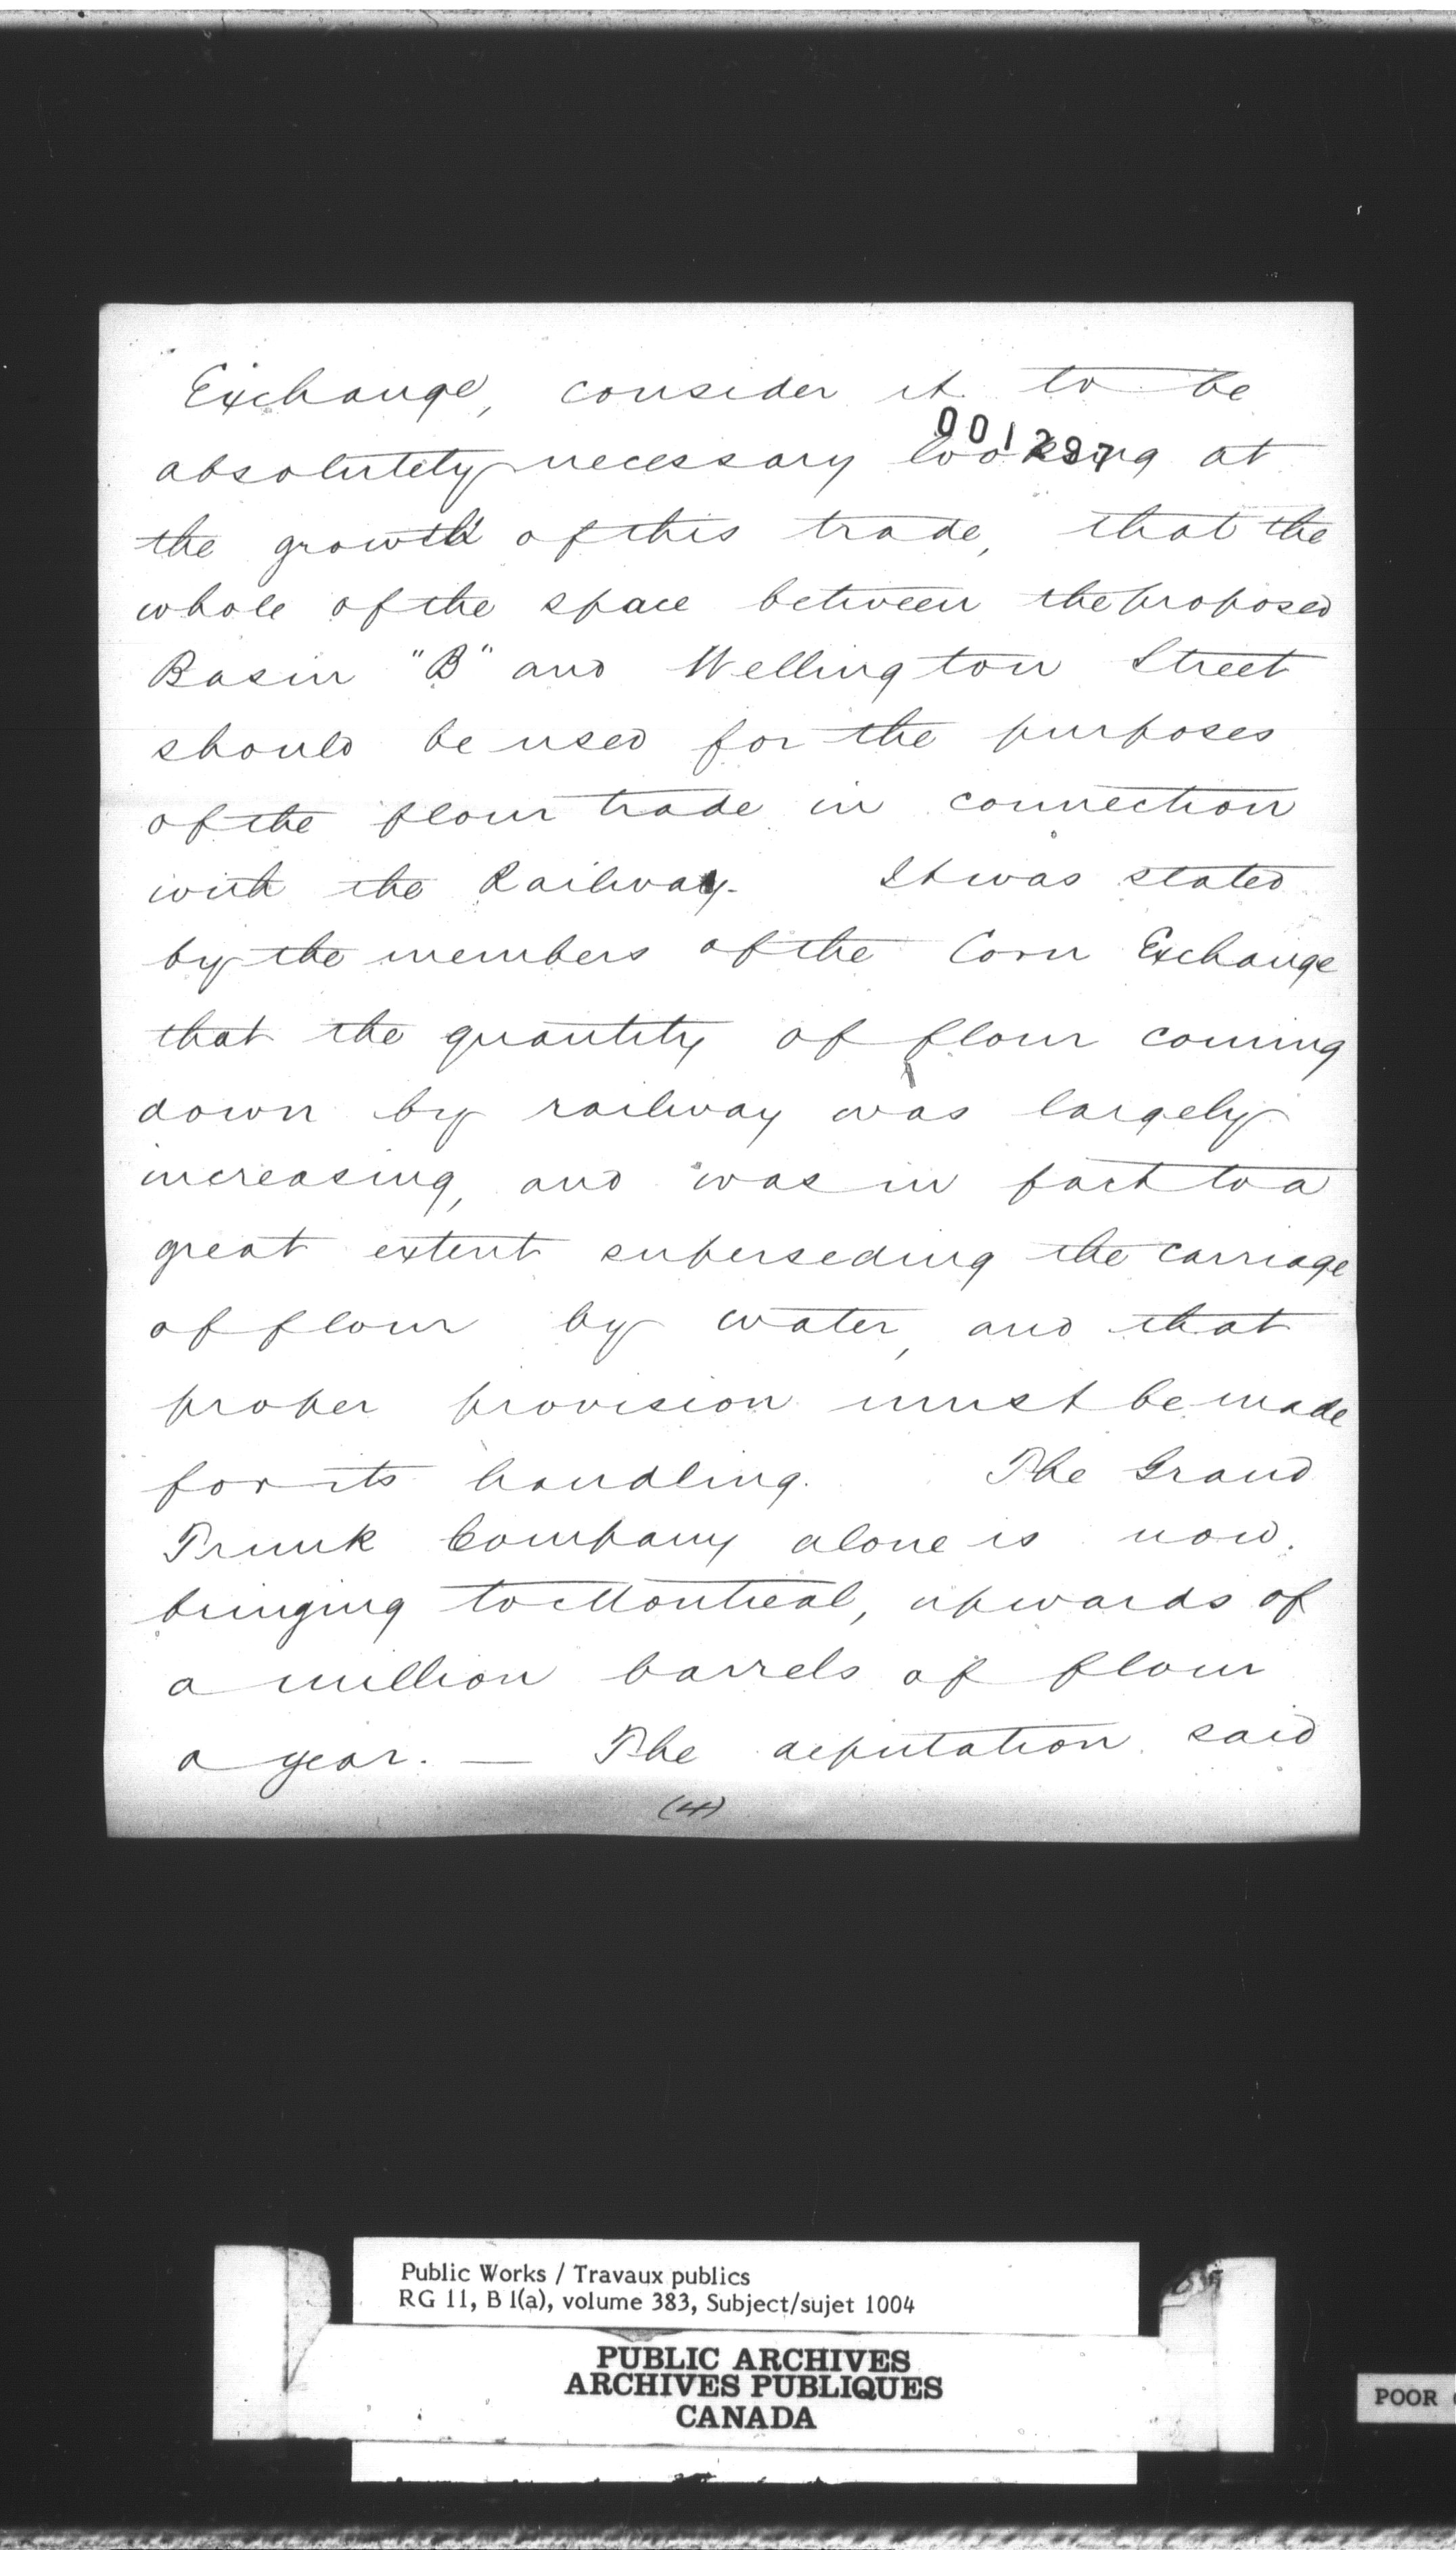 Exchange, consider it to be
001297
absolutely necessary looking at
the growth of this trade, that the
whole of the space between the proposed
Basin "B" and Wellington Street
should be used for the purposes
of the flour trade in connection
with the Railway. It was stated
by the members of the Corn Exchange
that the quantity of flour coming
down by railway was largely
increasing, and was in fact to a
great extent superseding the carriage
of flour by water, and that
proper provision must be made
for its handling. The Grand
Trunk Company alone is now.
bringing to Montreal, upwards of
a million barrels of flour
a year. — The deputation said
(4)
Public Works / Travaux publics
RG 11, B 1(a), volume 383, Subject/sujet 1004
PUBLIC ARCHIVES
ARCHIVES PUBLIQUES
CANADA
POOR